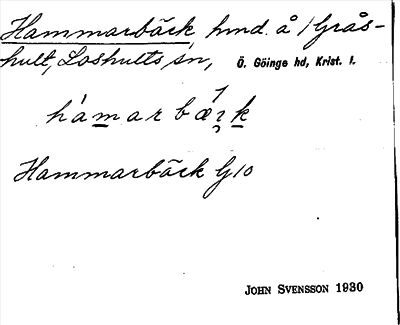 Hammarbäck, hmd. å i Grås-
hult, Loshults sn, Ö. Göinge hd, Krist. l.
hamarbæk
Hammarbäck G10
JOHN SVENSSON 1930